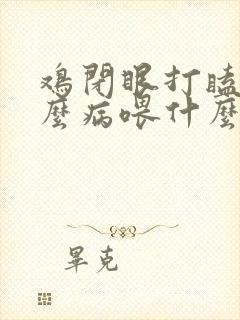 鸡閉眼打瞌
麼病喂什麼
畢克